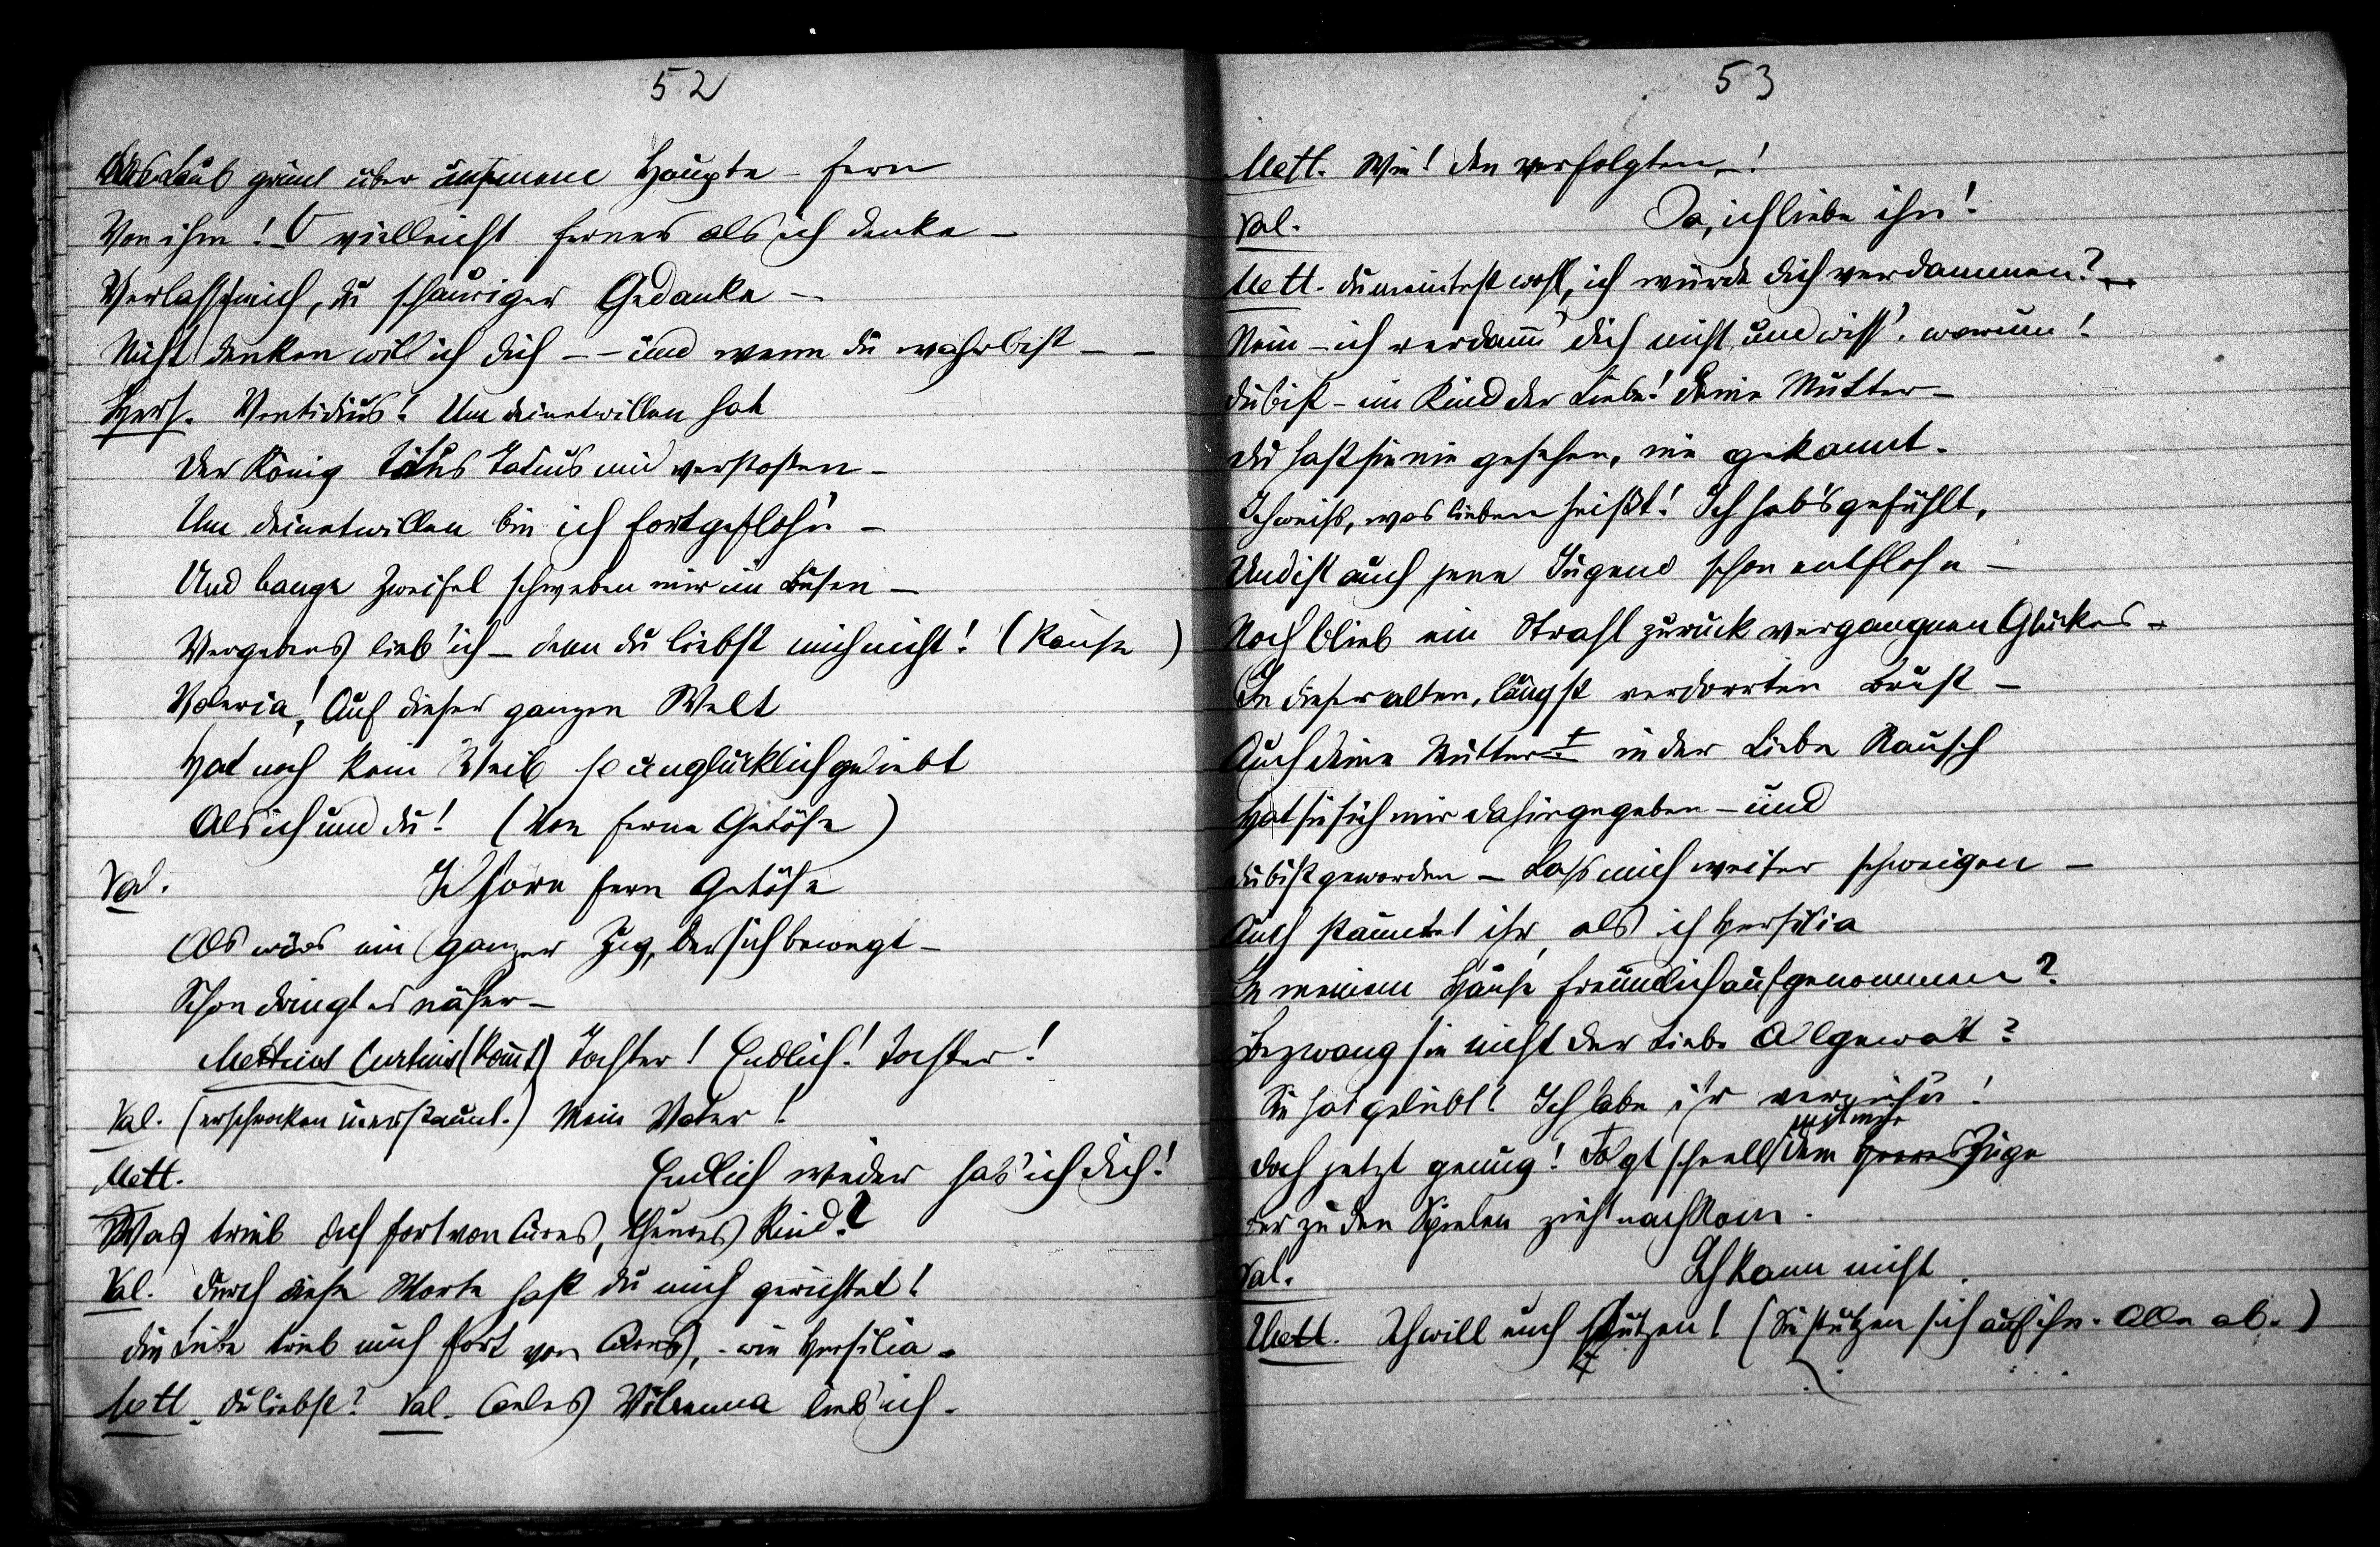 52
Das Laub grünt über unserem Haupte – fern
Von ihm! O vielleicht ferner als ich denke –
Verlass mich, du schauriger Gedanke –
Nicht denken will ich dich – – und wenn du wahr bist – –
Hers. Ventidius! Um deinetwillen hat
Der König Titus Tatius mich verstossen –
Um deinetwillen bin ich fortgefloh'n –
Und bange Zweifel schweben mir im Busen –
Vergebens lieb' ich – denn du liebst mich nicht! (Pause)
Valeria! Auf dieser ganzen Welt
Hat noch kein Weib so unglücklich geliebt
Als ich und du! (Von ferne Getöse)
Val. Ich höre fern Getöse
Als wär's ein ganzer Zug, der sich bewegt –
Schon dringt es näher –
Mettius Curtius (kommt) Tochter! Endlich! Tochter!
Val. (erschrocken u erstaunt.) Mein Vater!
Mett. Endlich wieder hab' ich dich!
Was trieb dich fort von Cures, theures Kind?
Val. Durch diese Worte hast du mich gerichtet!
Die Liebe trieb mich fort von Cures, – wie Hersilia –
Mett. Du liebst? Val. Caeles Vibenna lieb' ich.
53
Mett. Wie! den verfolgten –!
Val. Ja, ich liebe ihn!
Mett. Du meintest wohl, ich würde dich verdammen? –
Nein – ich verdamm' dich nicht und wiss', warum!
Du bist – ein Kind der Liebe! Deine Mutter –
Du hast sie nie gesehen, nie gekannt.
Ich weiß, was lieben heißt! Ich hab's gefühlt,
Und ist auch jene Jugend schon entfloh'n –
Noch blieb ein Strahl zurück vergangnen Glückes –
In dieser alten, längst verdorrten Brust –
Auch deine Mutter – in der Liebe Rausch
Hat sie sich mir dahingegeben – und
Du bist geworden – Lass mich weiter schweigen –
Auch stauntet ihr, als ich Hersilia
In meinem Hause freundlich aufgenommen?
Bezwang sie nicht der Liebe Allgewalt?
Sie hat geliebt! Ich habe ihr verzieh'n!
Doch jetzt genug! Folgt schnell dem Zuge
Der zu den Spielen zieht nach Rom.
Val. Ich kann nicht.
Mett. Ich will euch stützen! (Sie stützen sich auf ihn. Alle ab.)